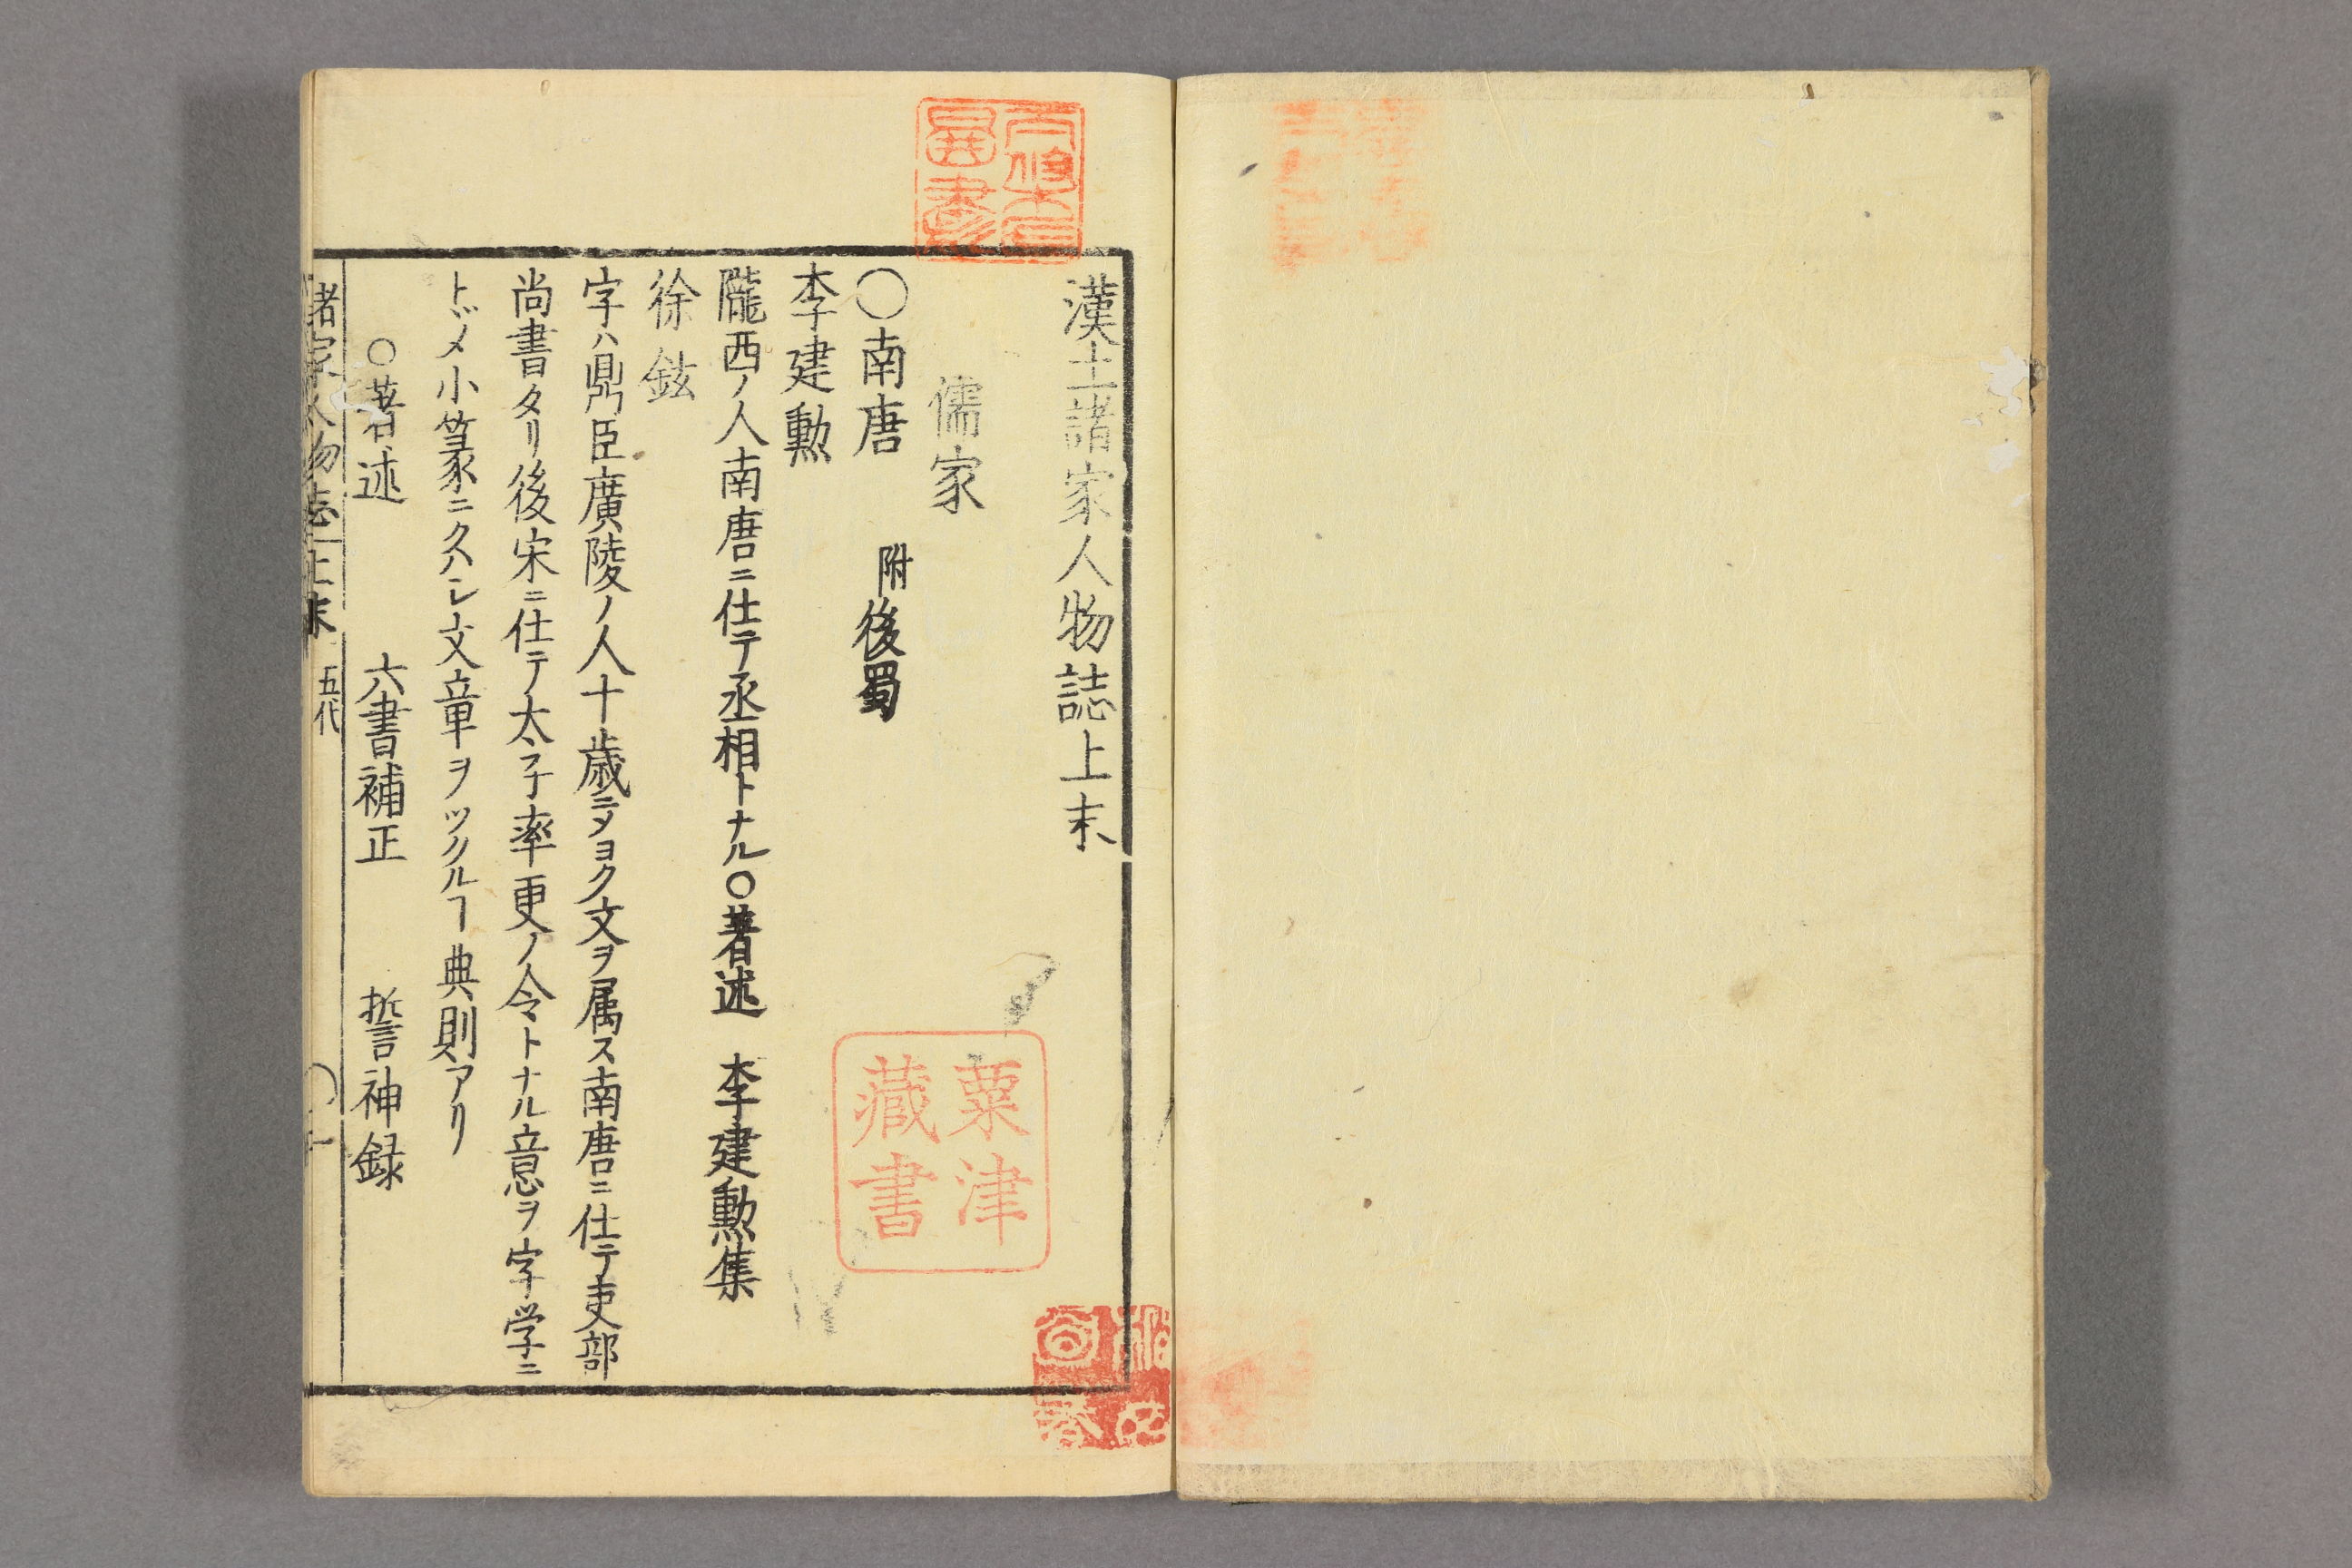 漢土諸家人物誌上末
儒家
〇南唐 附後蜀
李建勲
隴西ノ人南唐ニ仕テ丞相トナル〇著述 李建勲集
徐鉉
字ハ鼎臣廣陵ノ人十歳ニヨク文ヲ属ス南唐ニ仕テ吏部
尚書タリ後宋ニ仕テ太子率更ノ令トナル意ヲ字学ニ
トヾメ小篆ニクハシ文章ヲツクルヿ典則アリ
〇著述 六書補正 誓神録
諸家人物志上末 五代
粟津
藏書